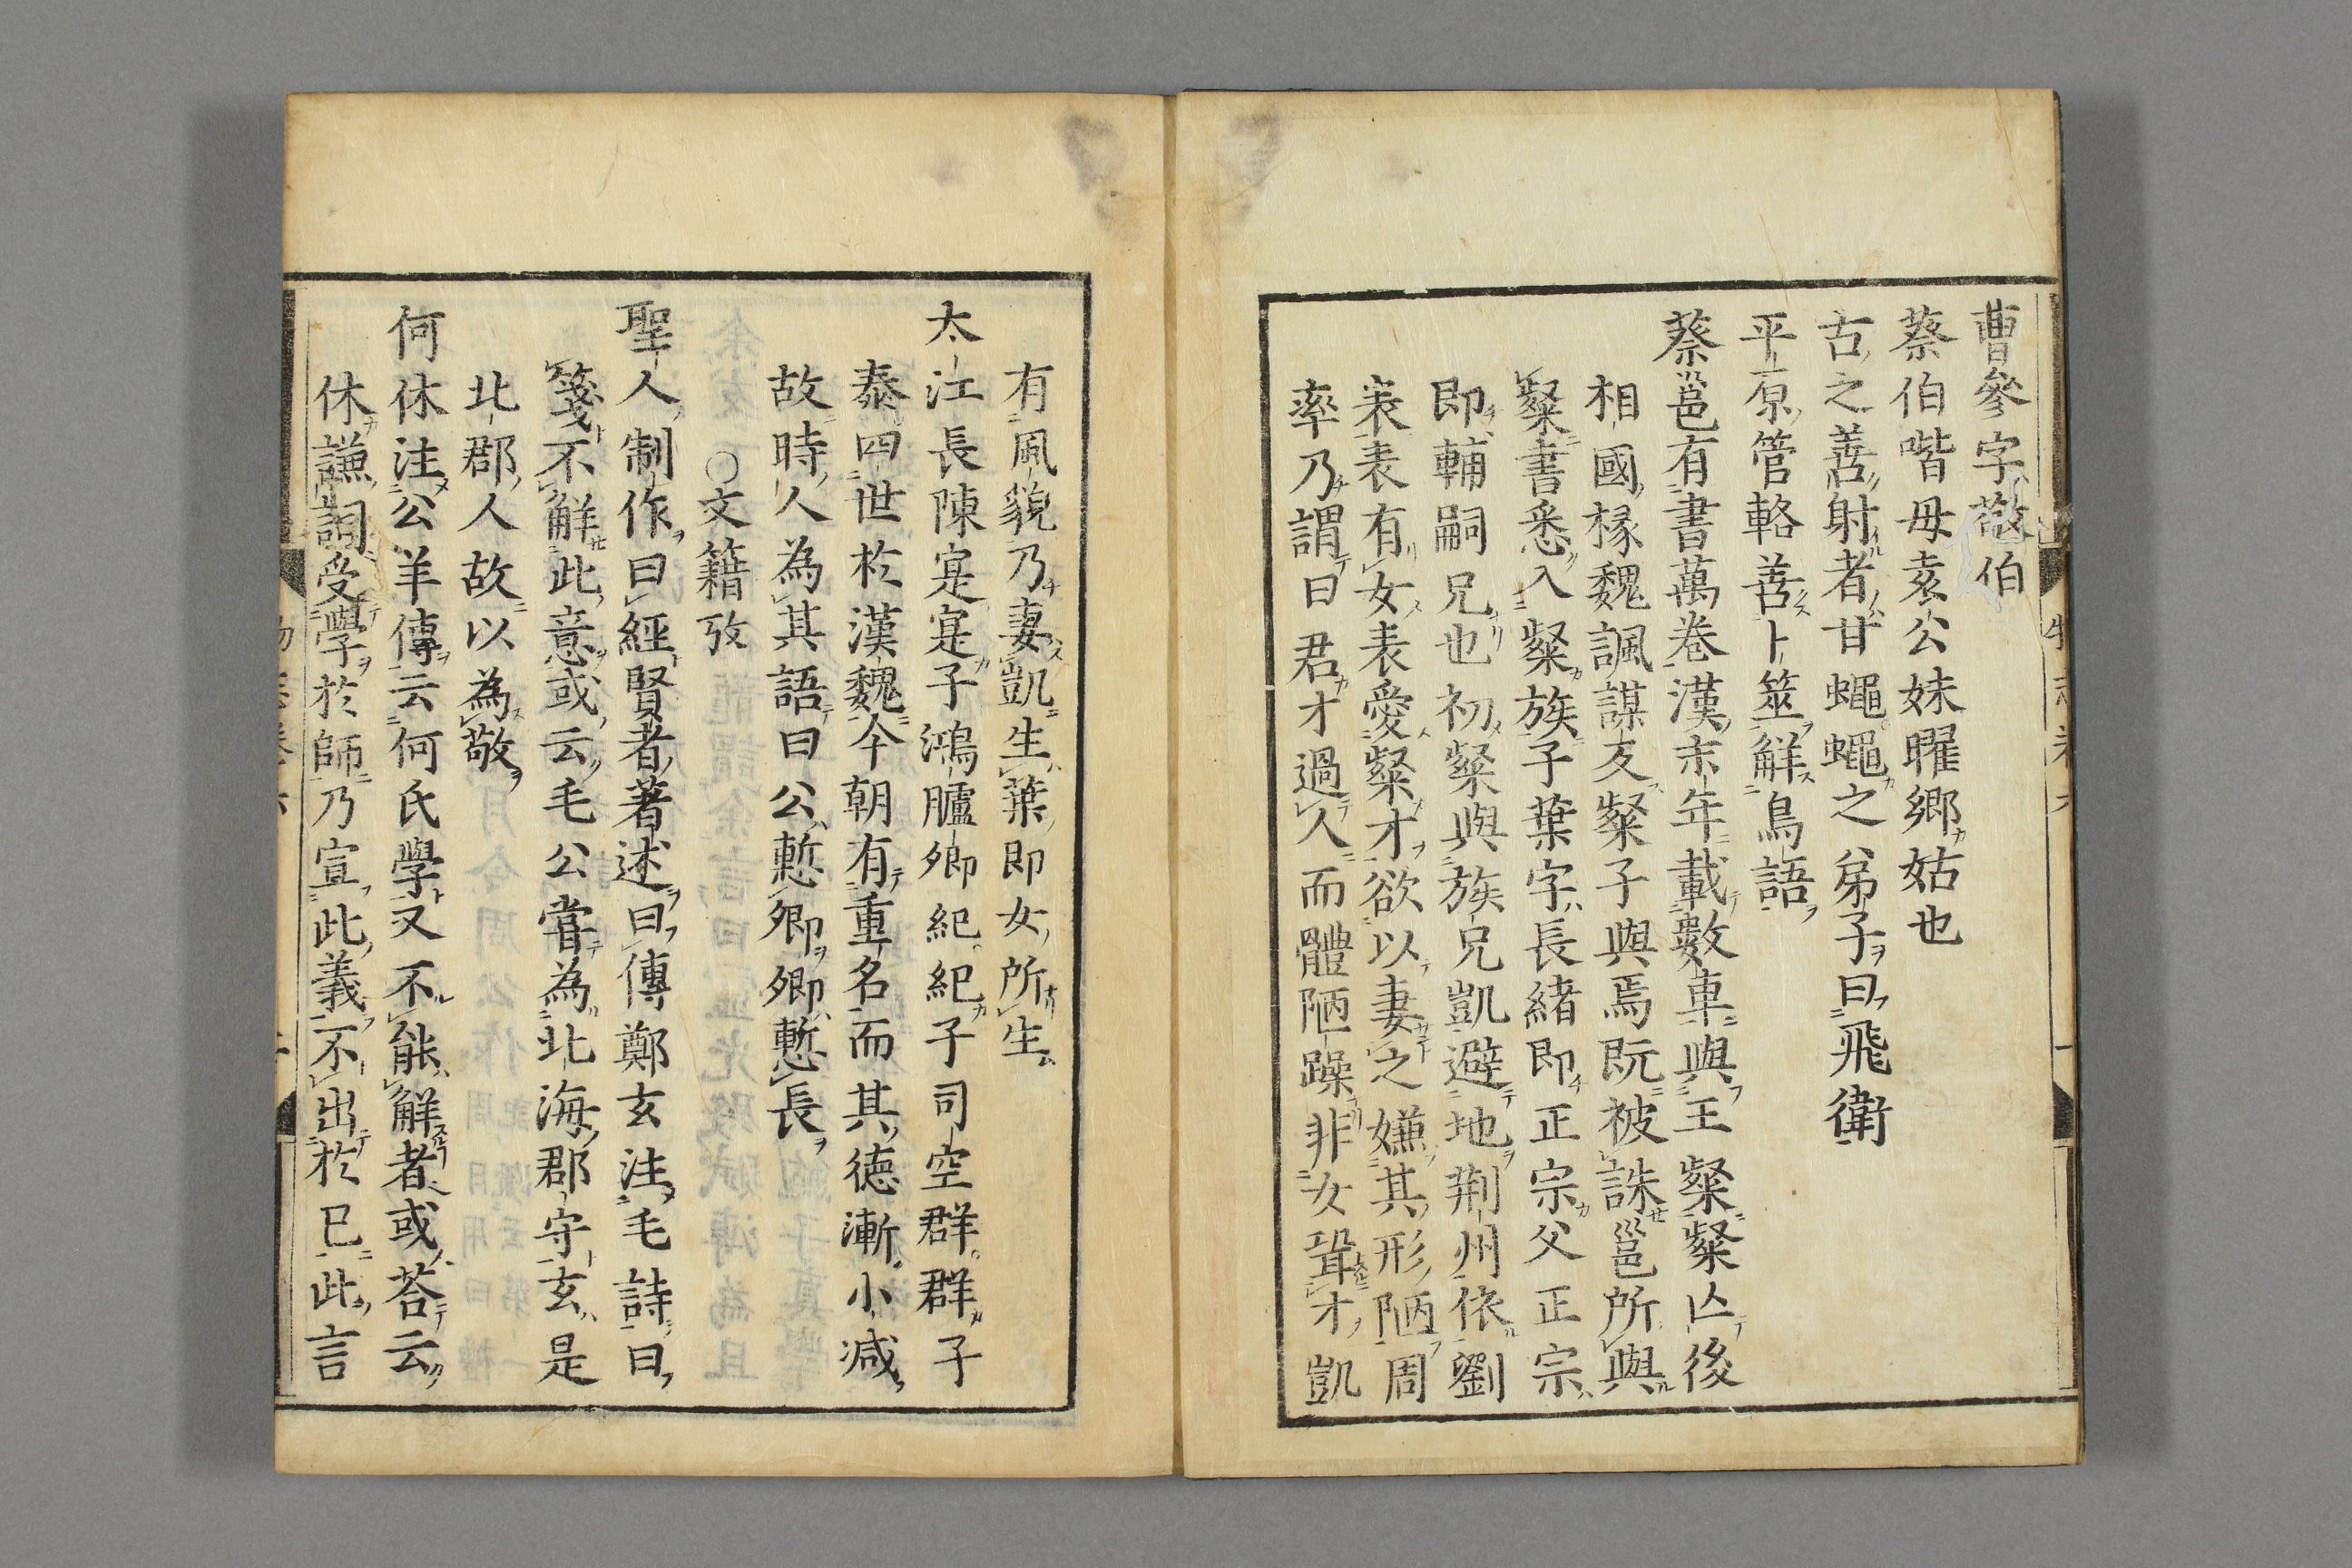 曹參字敬伯
蔡伯喈母袁公妹曜鄉姑也
古之善射者甘蠅蠅之弟子曰飛衛
平原管輅善卜筮解鳥語
蔡邕有書萬卷漢末年載數車與王粲粲亡後
相國椽魏諷謀反粲子與焉既被誅邕所與
粲書悉入粲族子葉字長緒即正宗父正宗
即輔嗣兄也初粲與族兄凱避地荆州依劉
表表有女表愛粲才欲以妻之嫌其形陋周
率乃謂曰君才過人而體陋躁非女聟才凱
有風貌乃妻凱生葉即女所生
太江長陳寔寔子鴻臚卿紀紀子司空群群子
泰四世於漢魏今朝有重名而其德漸小減
故時人為其語曰公慙卿卿慙長
○文籍攷
聖人制作曰經賢者著述曰傳鄭玄注毛詩曰
箋不解此意或云毛公嘗為北海郡守玄是
北郡人故以為敬
何休注公羊傳云何氏學又不能解者或荅云
休謙詞受學於師乃宣此義不出於已此言